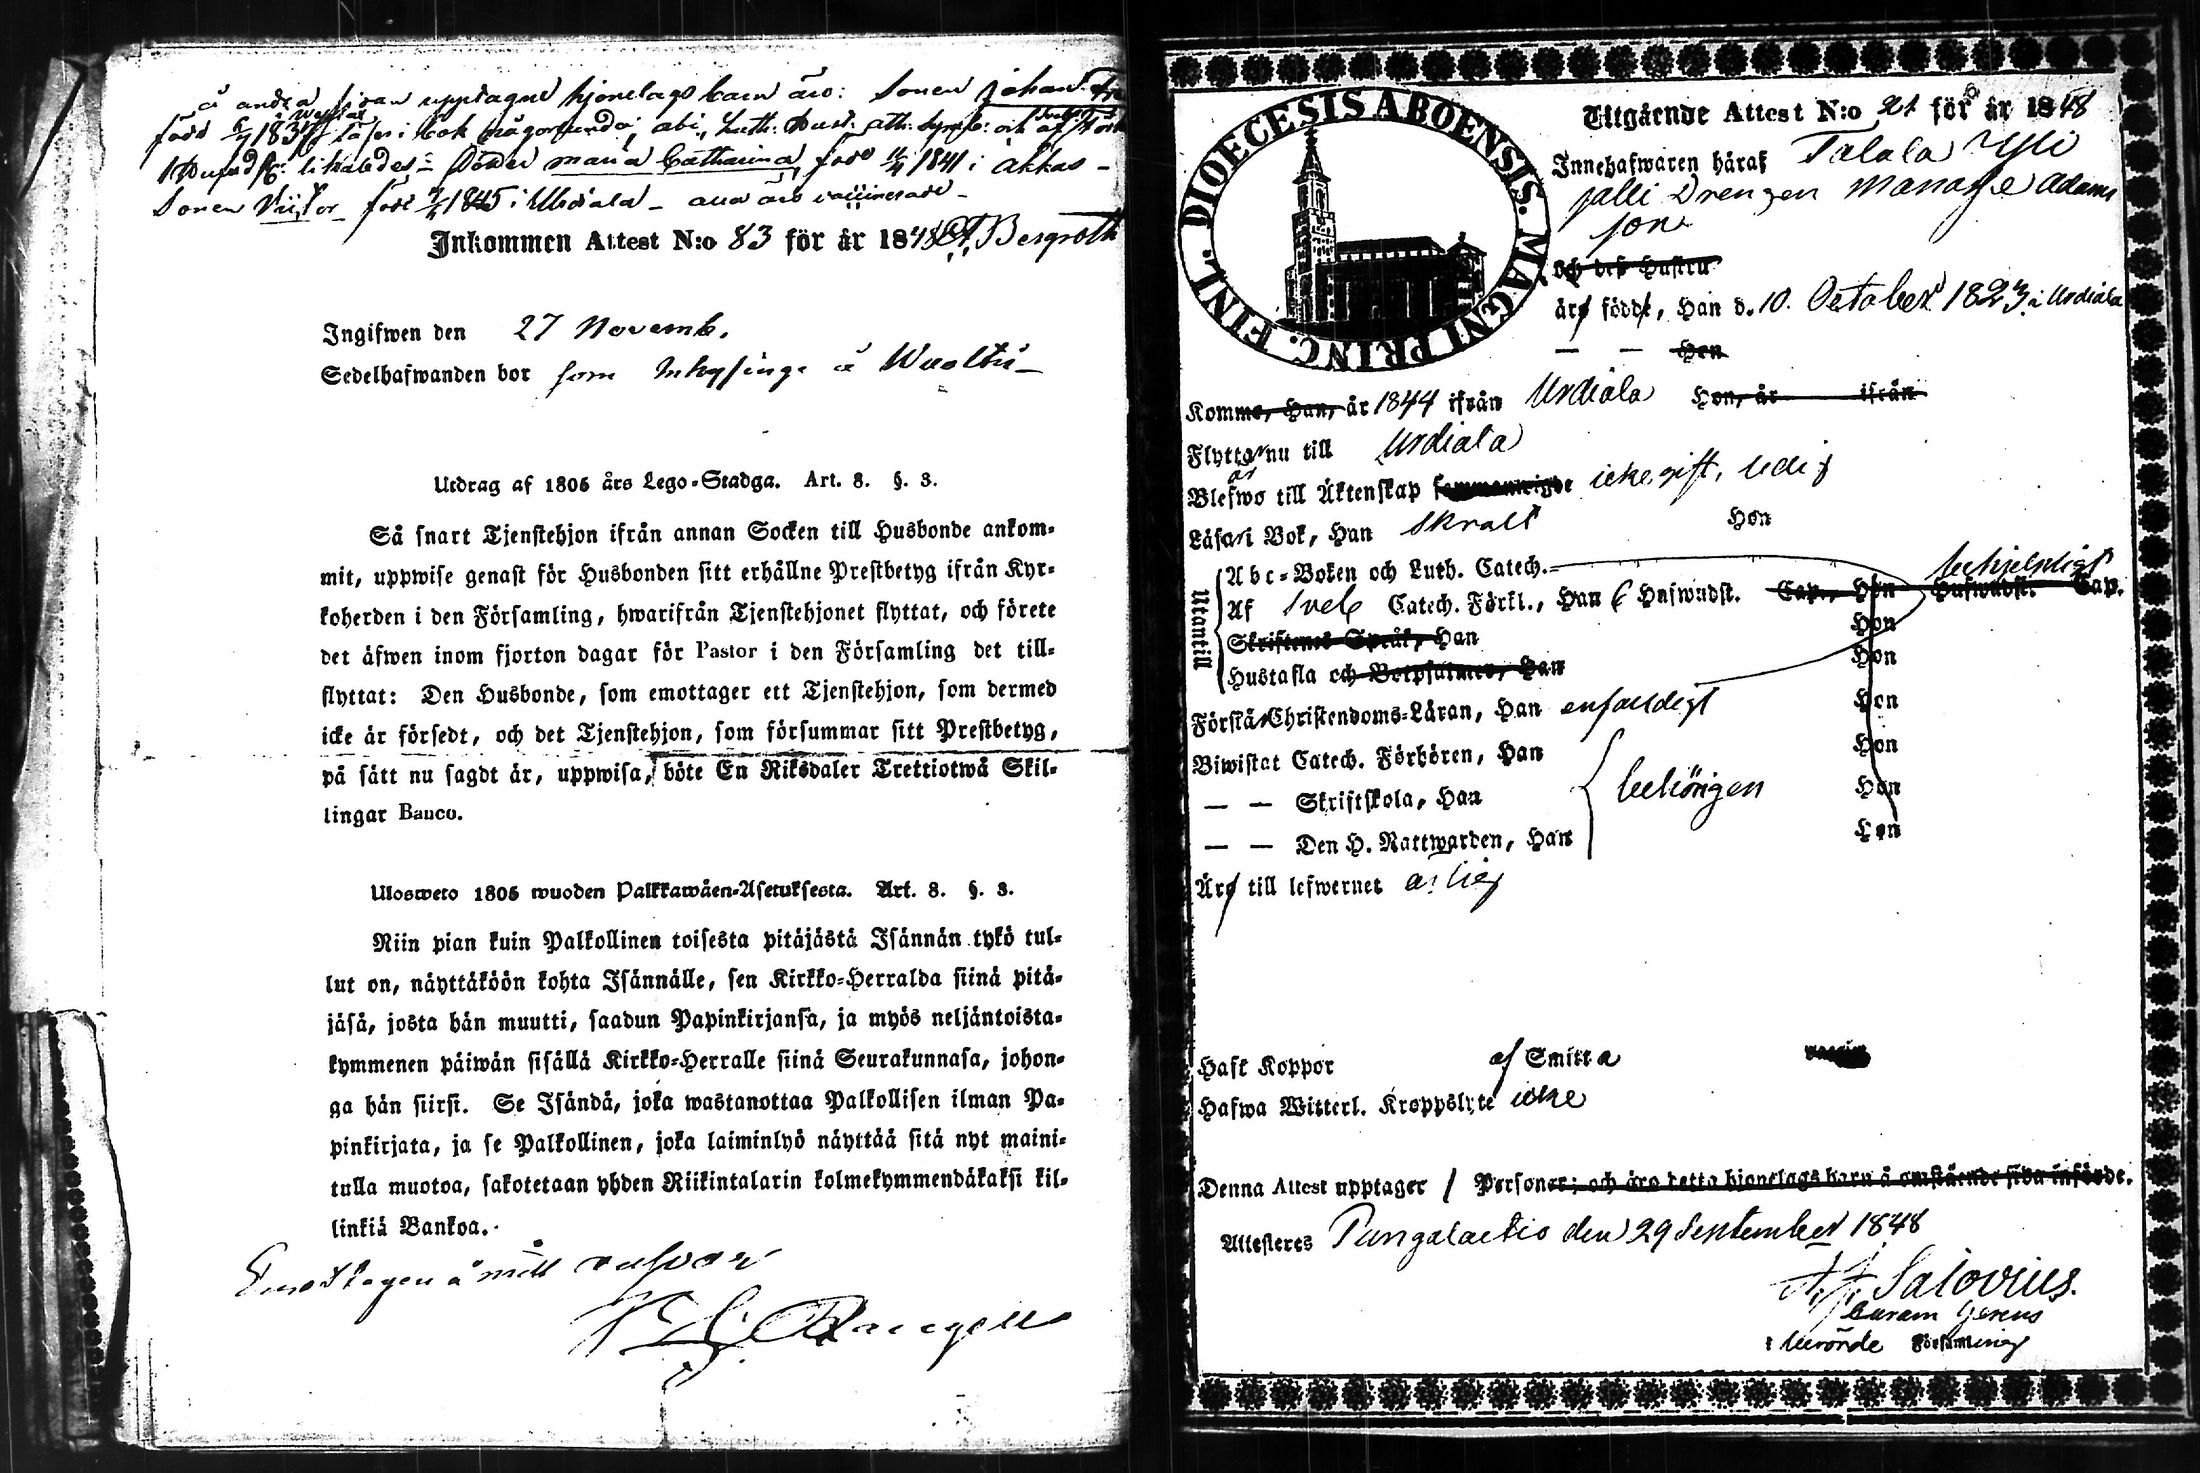 å andra sidan upptagne hjonelags barn äro: Sonen Johan
född 1837 i Läser i bok någorlunda, abi, Luth: Hust: ath: Symb: och af
likaledes = Dotter Maria Catharina, född 1841 i Akkas -
Sonen Victor född 1845 i Urdiala - alla äro vaccinerade -
Inkommen Attest N:o 83 för år 1848 Bergroth
Ingifwen den 27 Novemb.
Sedelhafwanden bor som Inhysinge å
Utdrag af 1805 års Lego-Stadga. Art. 8. §. 3.
Så snart Tjenstehjon ifrån annan Socken till Husbonde ankom-
mit, uppwise genast för Husbonden sitt erhållne Prestbetyg ifrån Kyr-
koherden i den Församling, hwarifrån Tjenstehjonet flyttat, och förete
det äfwen inom fjorton dagar för Pastor i den Församling det till-
flyttat: Den Husbonde, som emottager ett Tjenstehjon, som dermed
icke är försedt, och det Tjenstehjon, som försummar sitt Prestbetyg,
på sätt nu sagdt är, uppwisa, böte En Riksdaler Trettiotwå Skil-
lingar Banco.
Ulosweto 1805 wuoden Palkkawäen-Asetuksesta. Art. 8. §. 3.
Niin pian kuin Palkollinen toisesta pitäjästä Isännän tykö tul-
lut on, näyttäköön kohta Isännälle, sen Kirkko-Herralda siinä pitä-
jäsä, josta hän muutti, saadun Papinkirjansa, ja myös neljäntoista-
kymmenen päiwän sisällä Kirkko-Herralle siinä Seurakunnasa, johon-
ga hän siirsi. Se Isändä, joka wastanottaa Palkollisen ilman Pa-
pinkirjata, ja se Palkollinen, joka laiminlyö näyttää sitä nyt maini-
tulla muotoa, sakotetaan yhden Riikintalarin kolmekymmendäkaksi kil-
linkiä Bankoa.
Emottagen å mitt ansvar
DIOECESIS ABOENSIS. MAGNI PRINC. FINL.
Utgående Attest N:o 21 för år 1848
Innehafwaren häraf Talala Yli
jalli Drengen Manasse Adams
son
och des Hustru
äro födde, Han d. 10 October 1823 i Urdiala
— — Hon
Komme, Han, år 1844 ifrån Urdiala Hon, år ifrån
Flytta nu till Urdiala
Blefwo till Äktenskap sammanwigde icke gift, ledig
Läsa i Bok, Han skralt Hon
Utantill
Abc-Boken och Luth. Catech. behjelpligt
Af Sveb Catech. Förkl., Han 6 Hufwudst. Cap., Hon Hufwudst. Cap.
Skriftenes Språk, Han Hon
Hustafla och Botpsalmer, Han Hon
Förstå Christendoms-Läran, Han enfaldigt Hon
Biwistat Catech. Förhören, Han Hon
— — Skriftskola, Han behörigen Hon
— — Den H. Nattwarden, Han Hon
Äro till lefwernet ärlig
Haft Koppor af Smitta
Hafwa Witterl. Kroppslyte icke
Denna Attest upptager 1 Personer; och äro detta hjonelags barn å omstående sida införde.
Attesteres Pungalaitio den 29 September 1848
Salovius.
Curam Gerens
i berörde Församling